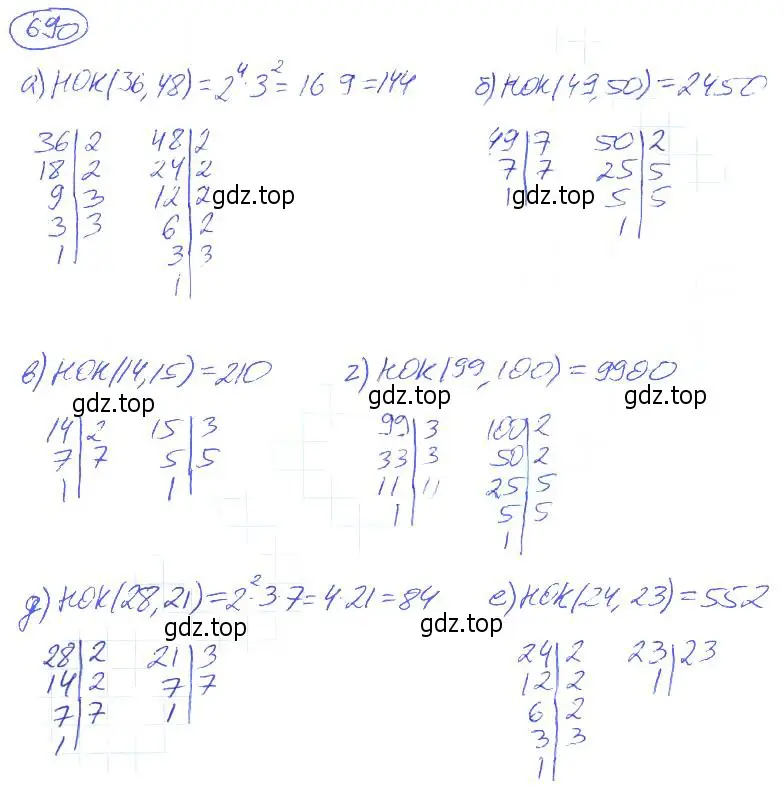 690
а) НОК(36,48) = 2⁴·3² = 16 9 = 144
36|2 48|2
18|2 24|2
9|3 12|2
3|3 6|2
1| 3|3
1|
gdz.top
б) НОК(49,50) = 2450
49|7 50|2
7|7 25|5
1| 5|5
1|
gdz.top
в) НОК(14,15) = 210
gdz.top
14|2 15|3
7|7 5|5
1| 1|
г) НОК(99,100) = 9900
gdz.top gdz.top
99|3 100|2
33|3 50|2
11|11 25|5
1| 5|5
1|
д) НОК(28,21) = 2²·3·7 = 4·21 = 84
gdz.top
28|2 21|3
14|2 7|7
7|7 1|
1|
е) НОК(24,23) = 552
gdz.top
24|2 23|23
12|2 1|
6|2
3|3
1|